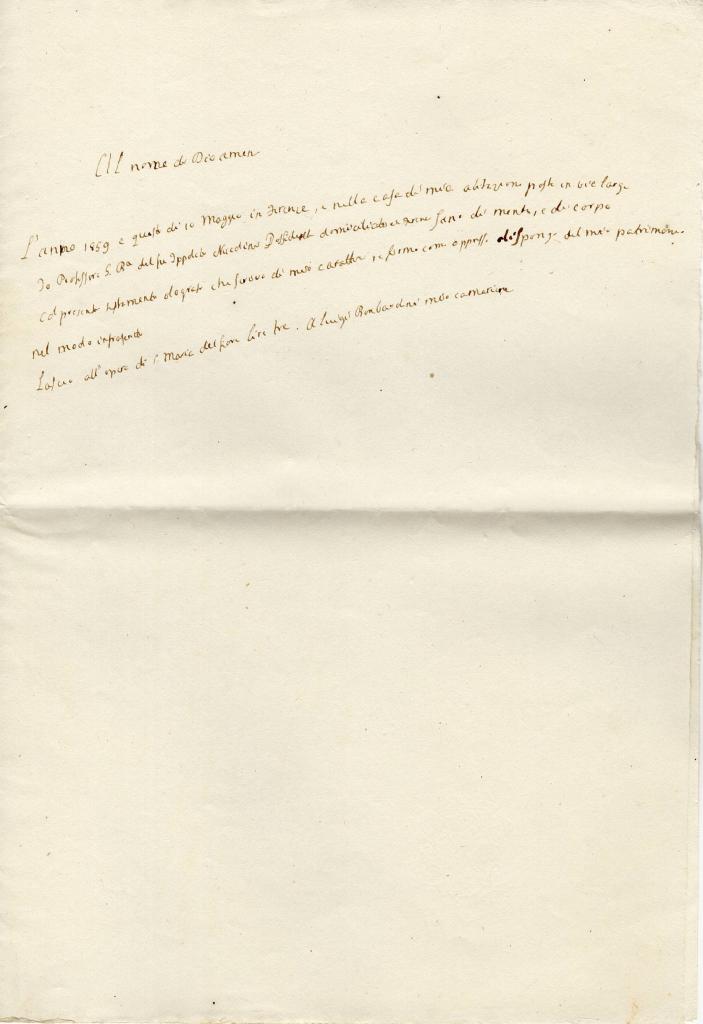 Al nome di Dio amen
L'anno 1859 e questo dì 10 Maggio in Firenze, e nella casa di mia abitazione posta in via larga
Io Professore G. Ba del fu Ippolito Niccolini Possidente domiciliato a Firenze sano di mente, e di corpo
col presente testamento olografo che scrivo di mio carattere, e firmo com appresso dispongo del mio patrimonio
nel modo infrascritto
Lascio all' opera di S. Maria del fiore lire tre. A luigi Bombardini mio cameriere